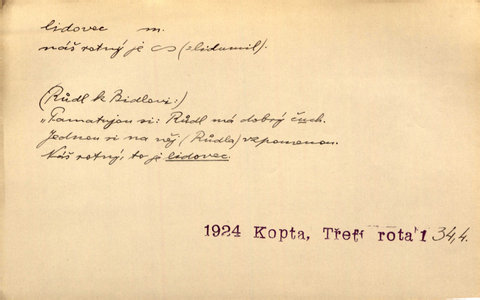 lidovec m.
náš rotný je ~ (= lidumil).
(Růdl k Bidlovi:)
"Pamatujou si: Růdl má dobrý čuch.
Jednou si na něj (Růdla) vzpomenou.
Náš rotný, to je lidovec.
1924 Kopta, Třetí rota 1 34,4.